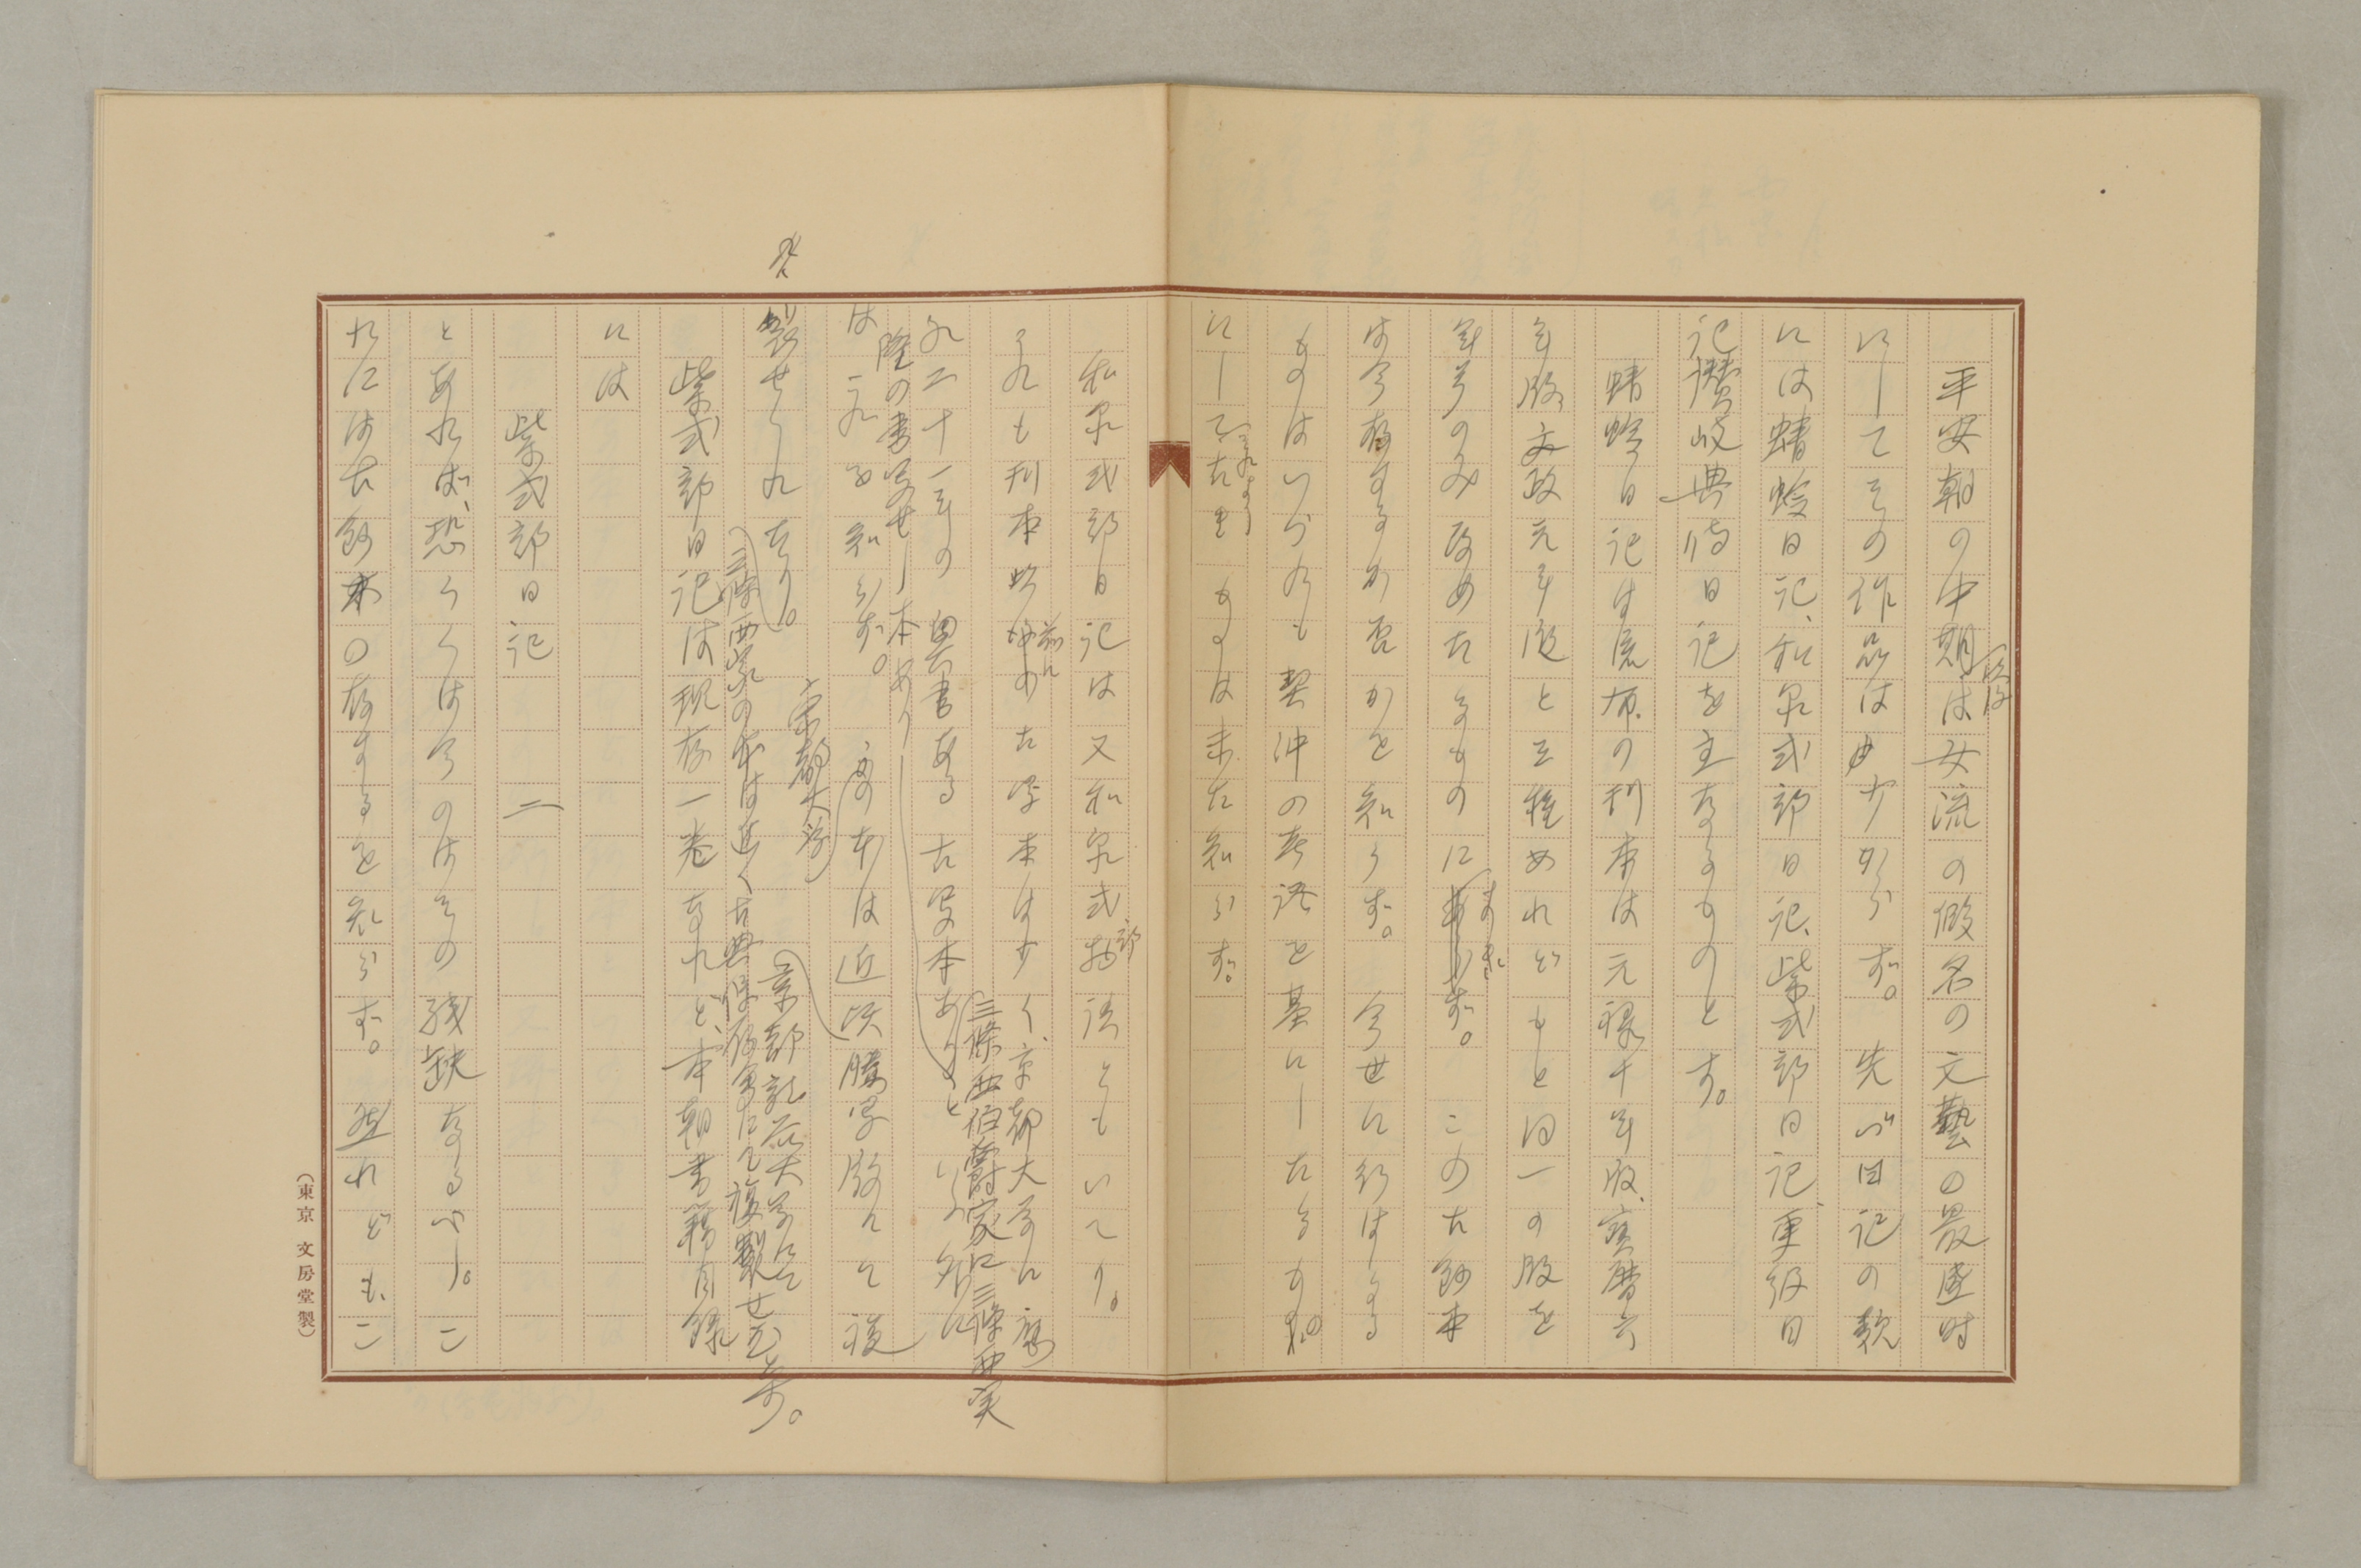 平安朝の中期は女流の假名の文藝の最盛時
にしてその作品は少からず。先づ日記の類
には蜻蛉日記、和泉式部日記、紫式部日記、更級日
記、讃岐典侍日記を主なるものとす。
蜻蛉日記は流布の刊本は元禄十年版、寶暦六
年版、文政元年版と三種あれどもと同一の版を
年号のみ改めたるものにすぎず。この古鈔本
は今存するか否かを知らず。今世に行はるる
ものはいづれも契沖の考證を基にしたるもの
にしてそれより古きものは未だ知らず。
和泉式部日記は又和泉式部物語ともいへり。
これも刊本の前の古寫本は少く、京都大學に應
永二十一年の奥書ある古写本あり
三條西伯爵家に三條西実
隆の書写せし本あり
は近頃膳写版にて複
製せられたり。
京都帝國大學にて
三條西家の本は近く古典保存會にて複製せむとす。
紫式部日記は現存一巻なれど、本朝書籍目録
には
紫式部日記 二
とあれば、恐らくは今のはその残缺なるべし。こ
れには古鈔本の存するを知らず。然れども、こ
(東京 文房堂製)